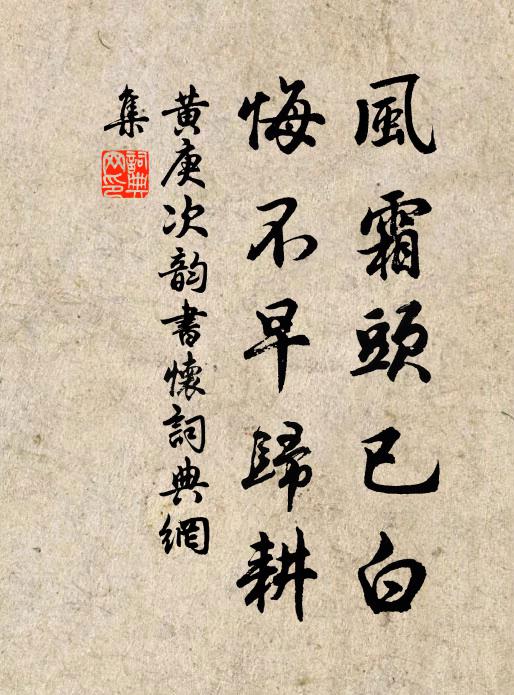 風霜頭已白
悔不早歸耕
黄庚次韵書懷詞典網
集
詞典
网印